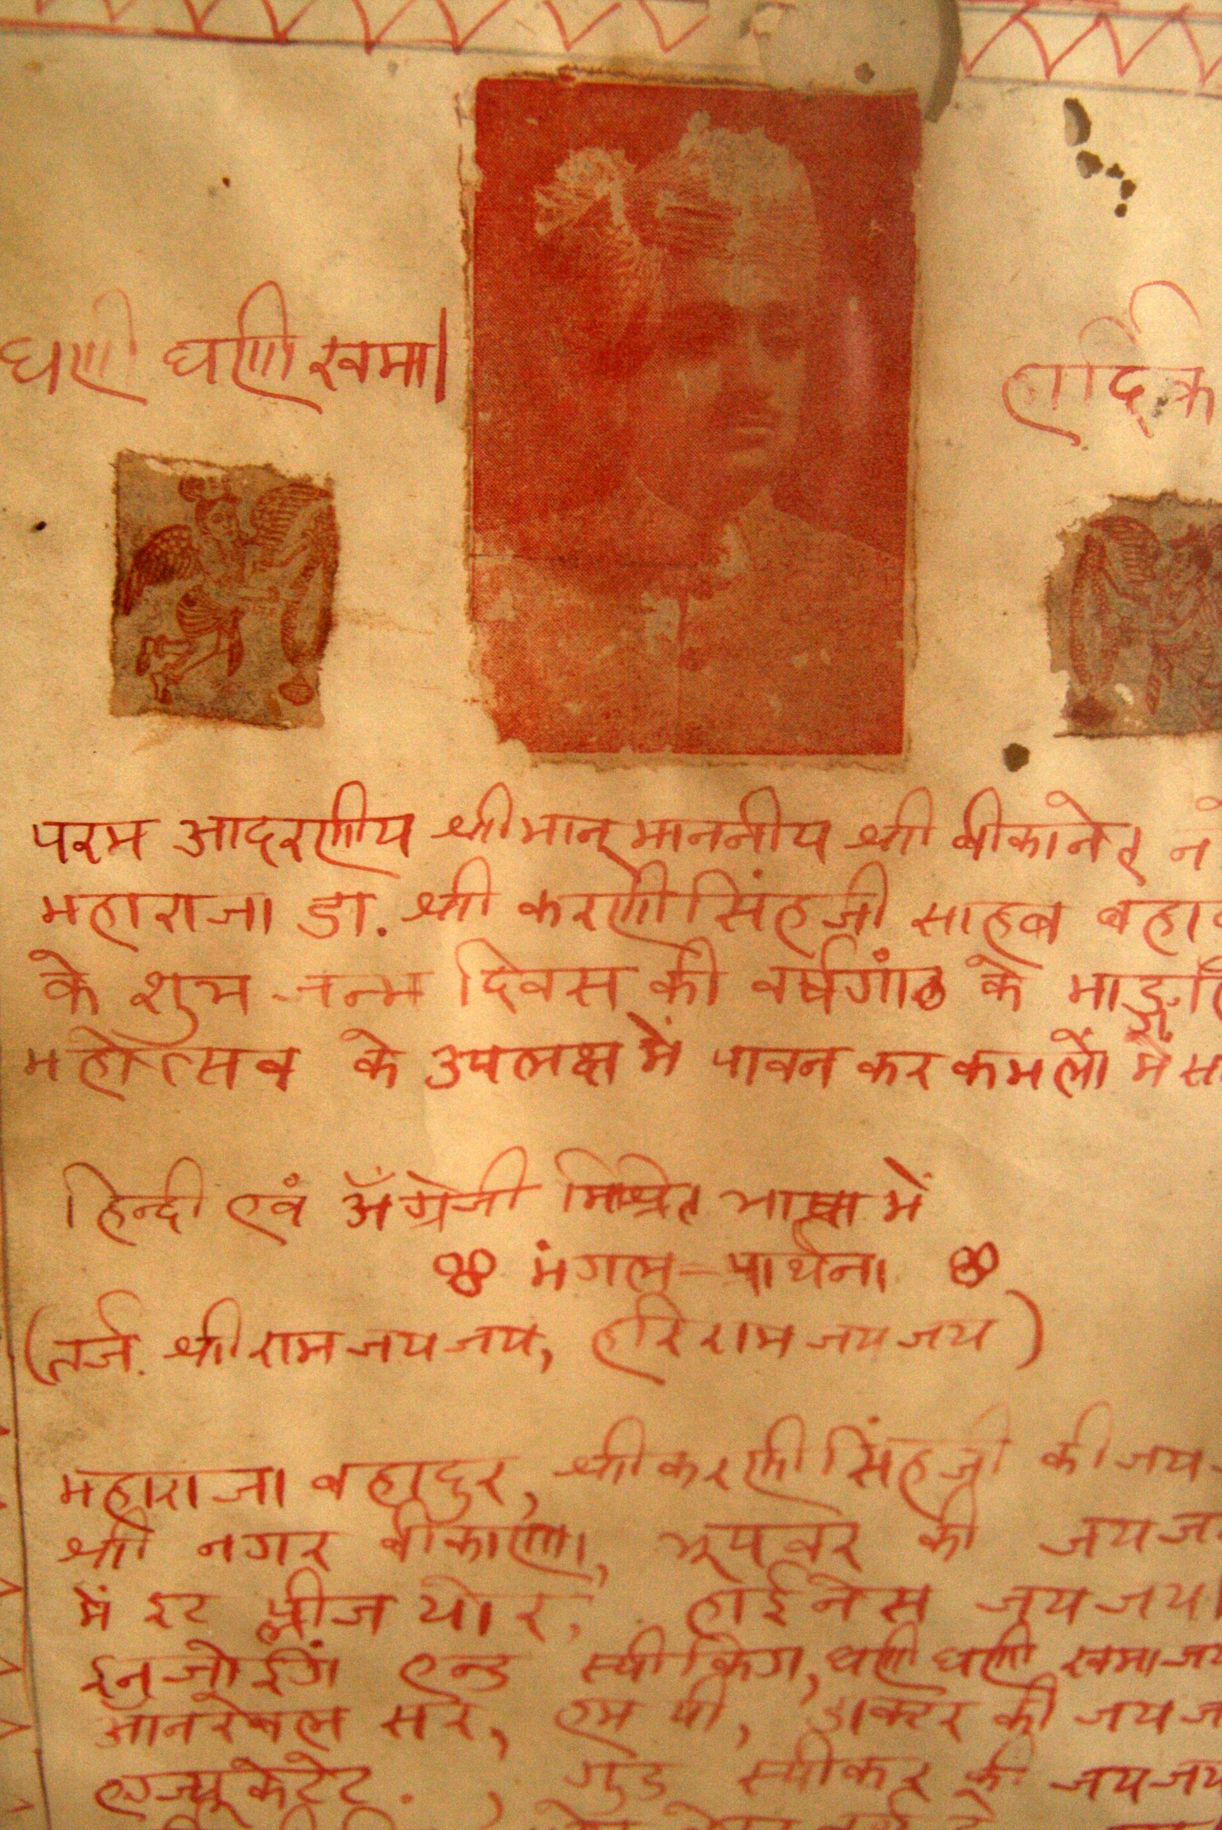 घणी घणी खमा।
हार्दिक
परम आदरणीय श्रीमान् माननीय श्री बीकानेर
महाराजा डा. श्री करणीसिंहजी साहब
के शुभ जन्म दिवस की वर्षगांठ के
महोत्सव के उपलक्ष में पावन कर कमलों में
हिन्दी एवं अँग्रेजी मिश्रित भाषा में
मंगल-प्रार्थना
(तर्ज. श्री राम जय जय, हरि राम जय जय)
महाराजा बहादुर, श्री करणीसिंहजी की जय
श्री नगर बीकाणा, भूपवर की जय
में इट प्लीज योर, हाईनेस जय जय
इनजोईंग एन्ड स्पीकिंग, घणी घणी खमा
आनरेबल सर, एम पी, डाक्टर की जय
एज्यूकेटेट. , गुड स्पीकर की जय